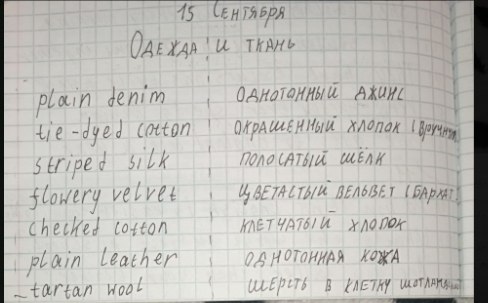 15 Сентября
Одежда и ткань
plain denim однотонный джинс
tie-dyed cotton окрашенный хлопок (вручную
striped silk полосатый шёлк
flowery velvet цветастый вельвет (бархат)
checked cotton клетчатый хлопок
plain leather однотонная кожа
tartan wool шерсть в клетку